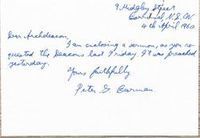 9 Hidgley Street
Corrimal N.S.W.
4th April 1960.
Dear Archdeacon,
I am enclosing a sermon, as you re-
quested the Deacons last Friday. It was preached
yesterday.
Yours faithfully
Peter D